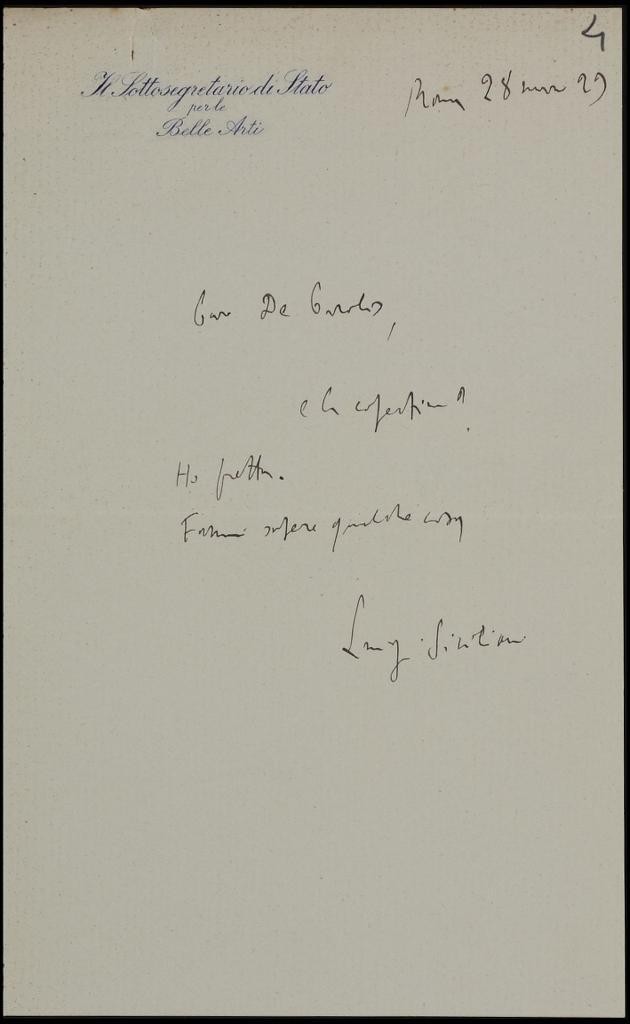 4
Il Sottosegretario di Stato
per le
Belle Arti
Roma 28 nov 29
Caro De Carolis,
e la copertina?
Ho fretta.
Fammi sapere qualche cosa
Luigi Siciliani